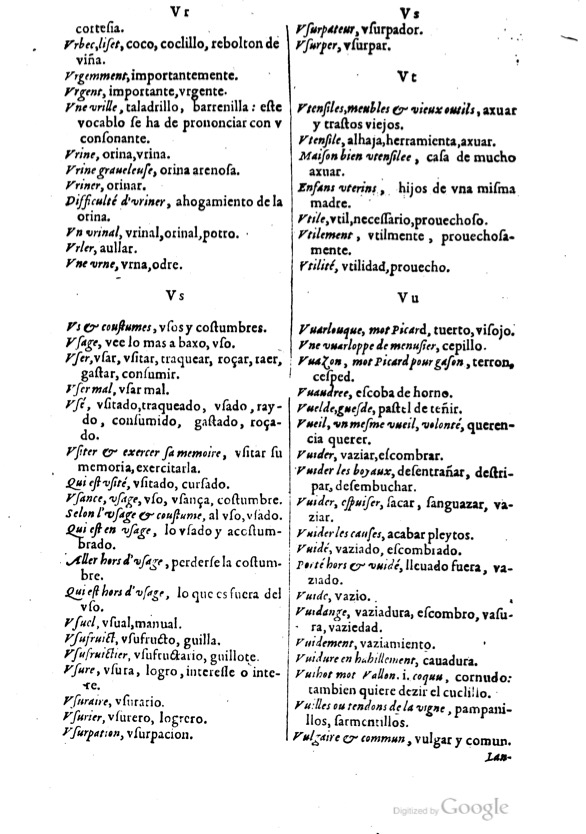 Vr
cortesia.
Vrbec, liset, coco, coclillo, rebolton de
viña.
Vrgemment, importantemente.
Vrgent, importante, vrgente.
Vne vrille, taladrillo, barrenilla : este
vocablo se ha de prononciar con v
consonante.
Vrine, orina, vrina.
Vrine graueleuse, orina arenosa.
Vriner, orinar.
Difficulté d'vriner, ahogamiento de la
orina.
Vn vrinal, vrinal, orinal, potro.
Vrler, aullar.
Vne vrne, vrna, odre.
Vs
Vs & coustumes, vsos y costumbres.
Vsage, vee lo mas a baxo, vso.
Vser, vsar, vsitar, traquear, roçar, raer,
gastar, consumir.
Vser mal, vsar mal.
Vsé, vsitado, traqueado, vsado, ray-
do, consumido, gastado, roça-
do.
Vsiter & exercer sa memoire, vsitar su
memoria, exercitarla.
Qui est vsité, vsitado, cursado.
Vsance, vsage, vso, vsança, costumbre.
Selon l'vsage & coustume, al vso, vsado.
Qui est en vsage, lo vsado y accstum-
brado.
Aller hors d'vsage, perderse la costum-
bre.
Qui est hors d'vsage, lo que es fuera del
vso.
Vsuel, vsual, manual.
Vsufruict, vsufructo, guilla.
Vsufruictier, vsufructario, guillote.
Vsure, vsura, logro, interesse o inte-
re.
Vsuraire, vsurario.
Vsurier, vsurero, logrero.
Vsurpation, vsurpacion.
Vs
Vsurpateur, vsurpador.
Vsurper, vsurpar.
Vt
Vtensiles, meubles & vieux outils, axuar
y trastos viejos.
Vtensile, alhaja, herramienta, axuar.
Maison bien vtensilee, casa de mucho
axuar.
Enfans vterins, hijos de vna misma
madre.
Vtile, vtil, necessario, prouechoso.
Vtilement, vtilmente, prouechosa-
mente.
Vtilité, vtilidad, prouecho.
Vu
Vuarlouque, mot Picard, tuerto, visojo.
Vne vuarloppe de menusier, cepillo.
Vuazon, mot Picard pour gason, terron,
cesped.
Vuaudree, escoba de horno.
Vuelde, guesde, pastel de teñir.
Vueil, vn mesme vueil, volonté, queren-
cia querer.
Vuider, vaziar, escombrar.
Vuider les boyaux, desentrañar, destri-
par, desembuchar.
Vuider, espuiser, sacar, sanguazar, va-
ziar.
Vuider les causes, acabar pleytos.
Vuidé, vaziado, escombrado.
Porté hors & vuidé, lleuado fuera, va-
ziado.
Vuide, vazio.
Vuidange, vaziadura, escombro, vasu-
ra, vaziedad.
Vuidement, vaziamiento.
Vuidure en habillement, cauadura.
Vuihot mot Vallon. i. coquu, cornudo:
tambien quiere dezir el cuclillo.
Vuilles ou tendons de la vigne, pampani-
llos, sarmentillos.
Vulgaire & commun, vulgar y comun.
Lan-
Digitized by Google